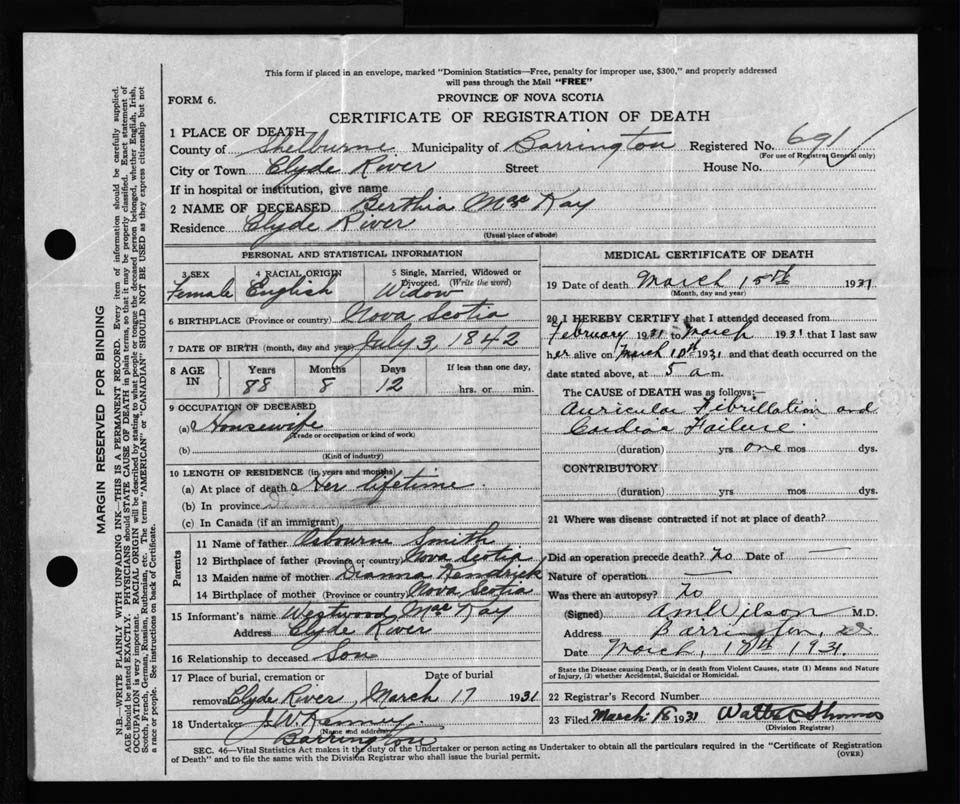 This form if placed in an envelope, marked "Dominion Statistics—Free, penalty for improper use, $300," and properly addressed
will pass through the Mail "FREE"
FORM 6.
PROVINCE OF NOVA SCOTIA
CERTIFICATE OF REGISTRATION OF DEATH
1 PLACE OF DEATH
County of Shelburne Municipality of Barrington Registered No. 691
(For use of Registrar General only)
City or Town Clyde River Street House No.
If in hospital or institution, give name
2 NAME OF DECEASED Berthia Mac Kay
Residence Clyde River
(Usual place of abode)
PERSONAL AND STATISTICAL INFORMATION
3 SEX 4 RACIAL ORIGIN 5 Single, Married, Widowed or
Divorced. (Write the word)
Female English Widow
6 BIRTHPLACE (Province or country) Nova Scotia
7 DATE OF BIRTH (month, day and year) July 3, 1842
8 AGE IN Years Months Days If less than one day,
88 8 12 hrs. or min.
9 OCCUPATION OF DECEASED
(a) Housewife
(Trade or occupation or kind of work)
(b)
(Kind of industry)
10 LENGTH OF RESIDENCE (in years and months)
(a) At place of death Her lifetime
(b) In province
(c) In Canada (if an immigrant)
Parents
11 Name of father Osbourne Smith
12 Birthplace of father (Province or country) Nova Scotia
13 Maiden name of mother Dianna Kendrick
14 Birthplace of mother (Province or country) Nova Scotia
15 Informant's name Westwood Mac Kay
Address Clyde River
16 Relationship to deceased Son
17 Place of burial, cremation or Date of burial
removal Clyde River March 17 1931
18 Undertaker J. W. Kenney.
(Name and address)
Barrington
MEDICAL CERTIFICATE OF DEATH
19 Date of death March 15th 1931
(Month, day and year)
20 I HEREBY CERTIFY that I attended deceased from
February 1931 to March 1931 that I last saw
her alive on March 10th 1931 and that death occurred on
date stated above, at 5 a m.
The CAUSE of DEATH was as follows:
Auricular Fibrillation and
Cardiac Failure.
(duration) yrs one mos dys.
CONTRIBUTORY
(duration) yrs mos dys.
21 Where was disease contracted if not at place of death?
Did an operation precede death? No Date of —
Nature of operation —
Was there an autopsy? No
(Signed) A M Wilson M.D.
Address Barrington,
Date March, 17th 1931.
State the Disease causing Death, or in death from Violent Causes, state (1) Means and Nature
of Injury, (2) whether Accidental, Suicidal or Homicidal.
22 Registrar's Record Number
23 Filed March 18 1931 Walter Thomas
(Division Registrar)
SEC. 46—Vital Statistics Act makes it the duty of the Undertaker or person acting as Undertaker to obtain all the particulars required in the "Certificate of Registration
of Death" and to file the same with the Division Registrar who shall issue the burial permit.
(OVER)
MARGIN RESERVED FOR BINDING
N.B.—WRITE PLAINLY WITH UNFADING INK—THIS IS A PERMANENT RECORD. Every item of information should be carefully supplied.
AGE should be stated EXACTLY. PHYSICIANS should STATE CAUSE OF DEATH in plain terms, so that it may be properly classified. Exact statement of
OCCUPATION is very important. RACIAL ORIGIN will be described by stating to what people or tongue the deceased person belonged, whether English, Irish,
Scotch, French, German, Russian, Ruthenian, etc. The terms "AMERICAN" or "CANADIAN" SHOULD NOT BE USED as they express citizenship but not
a race or people. See instructions on back of Certificate.